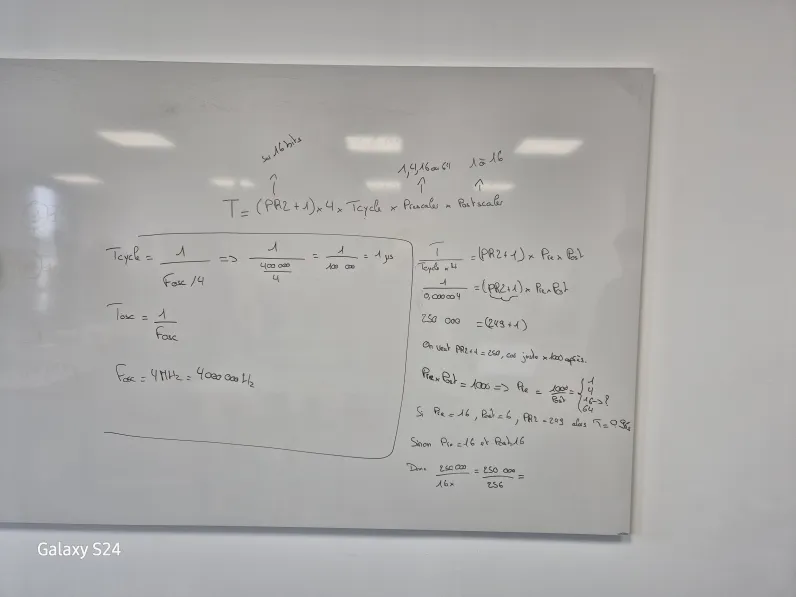 sur 16 bits
1, 4, 16 ou 64
1 à 16
T = (PR2 + 1) × 4 × Tcycle × Prescaler × Postscaler
Tcycle = 1 / (Fosc / 4) => 1 / (400 000 / 4) = 1 / 100 000 = 1 µs
Tosc = 1 / Fosc
Fosc = 4 MHz = 4000 000 Hz
T / (Tcycle × 4) = (PR2 + 1) × Pre × Post
1 / 0,000004 = (PR2 + 1) × Pre × Post
250 000 = (249 + 1)
On veut PR2 + 1 = 250, car juste × 1000 après.
Pre × Post = 1000 => Pre = 1000 / Post = { 1
4
16 -> ?
64
Si Pre = 16, Post = 6, PR2 = 249 alors T = 0,96s
Sinon Pre = 16 et Post = 16
Donc 250 000 / 16 × = 250 000 / 256 =
Galaxy S24